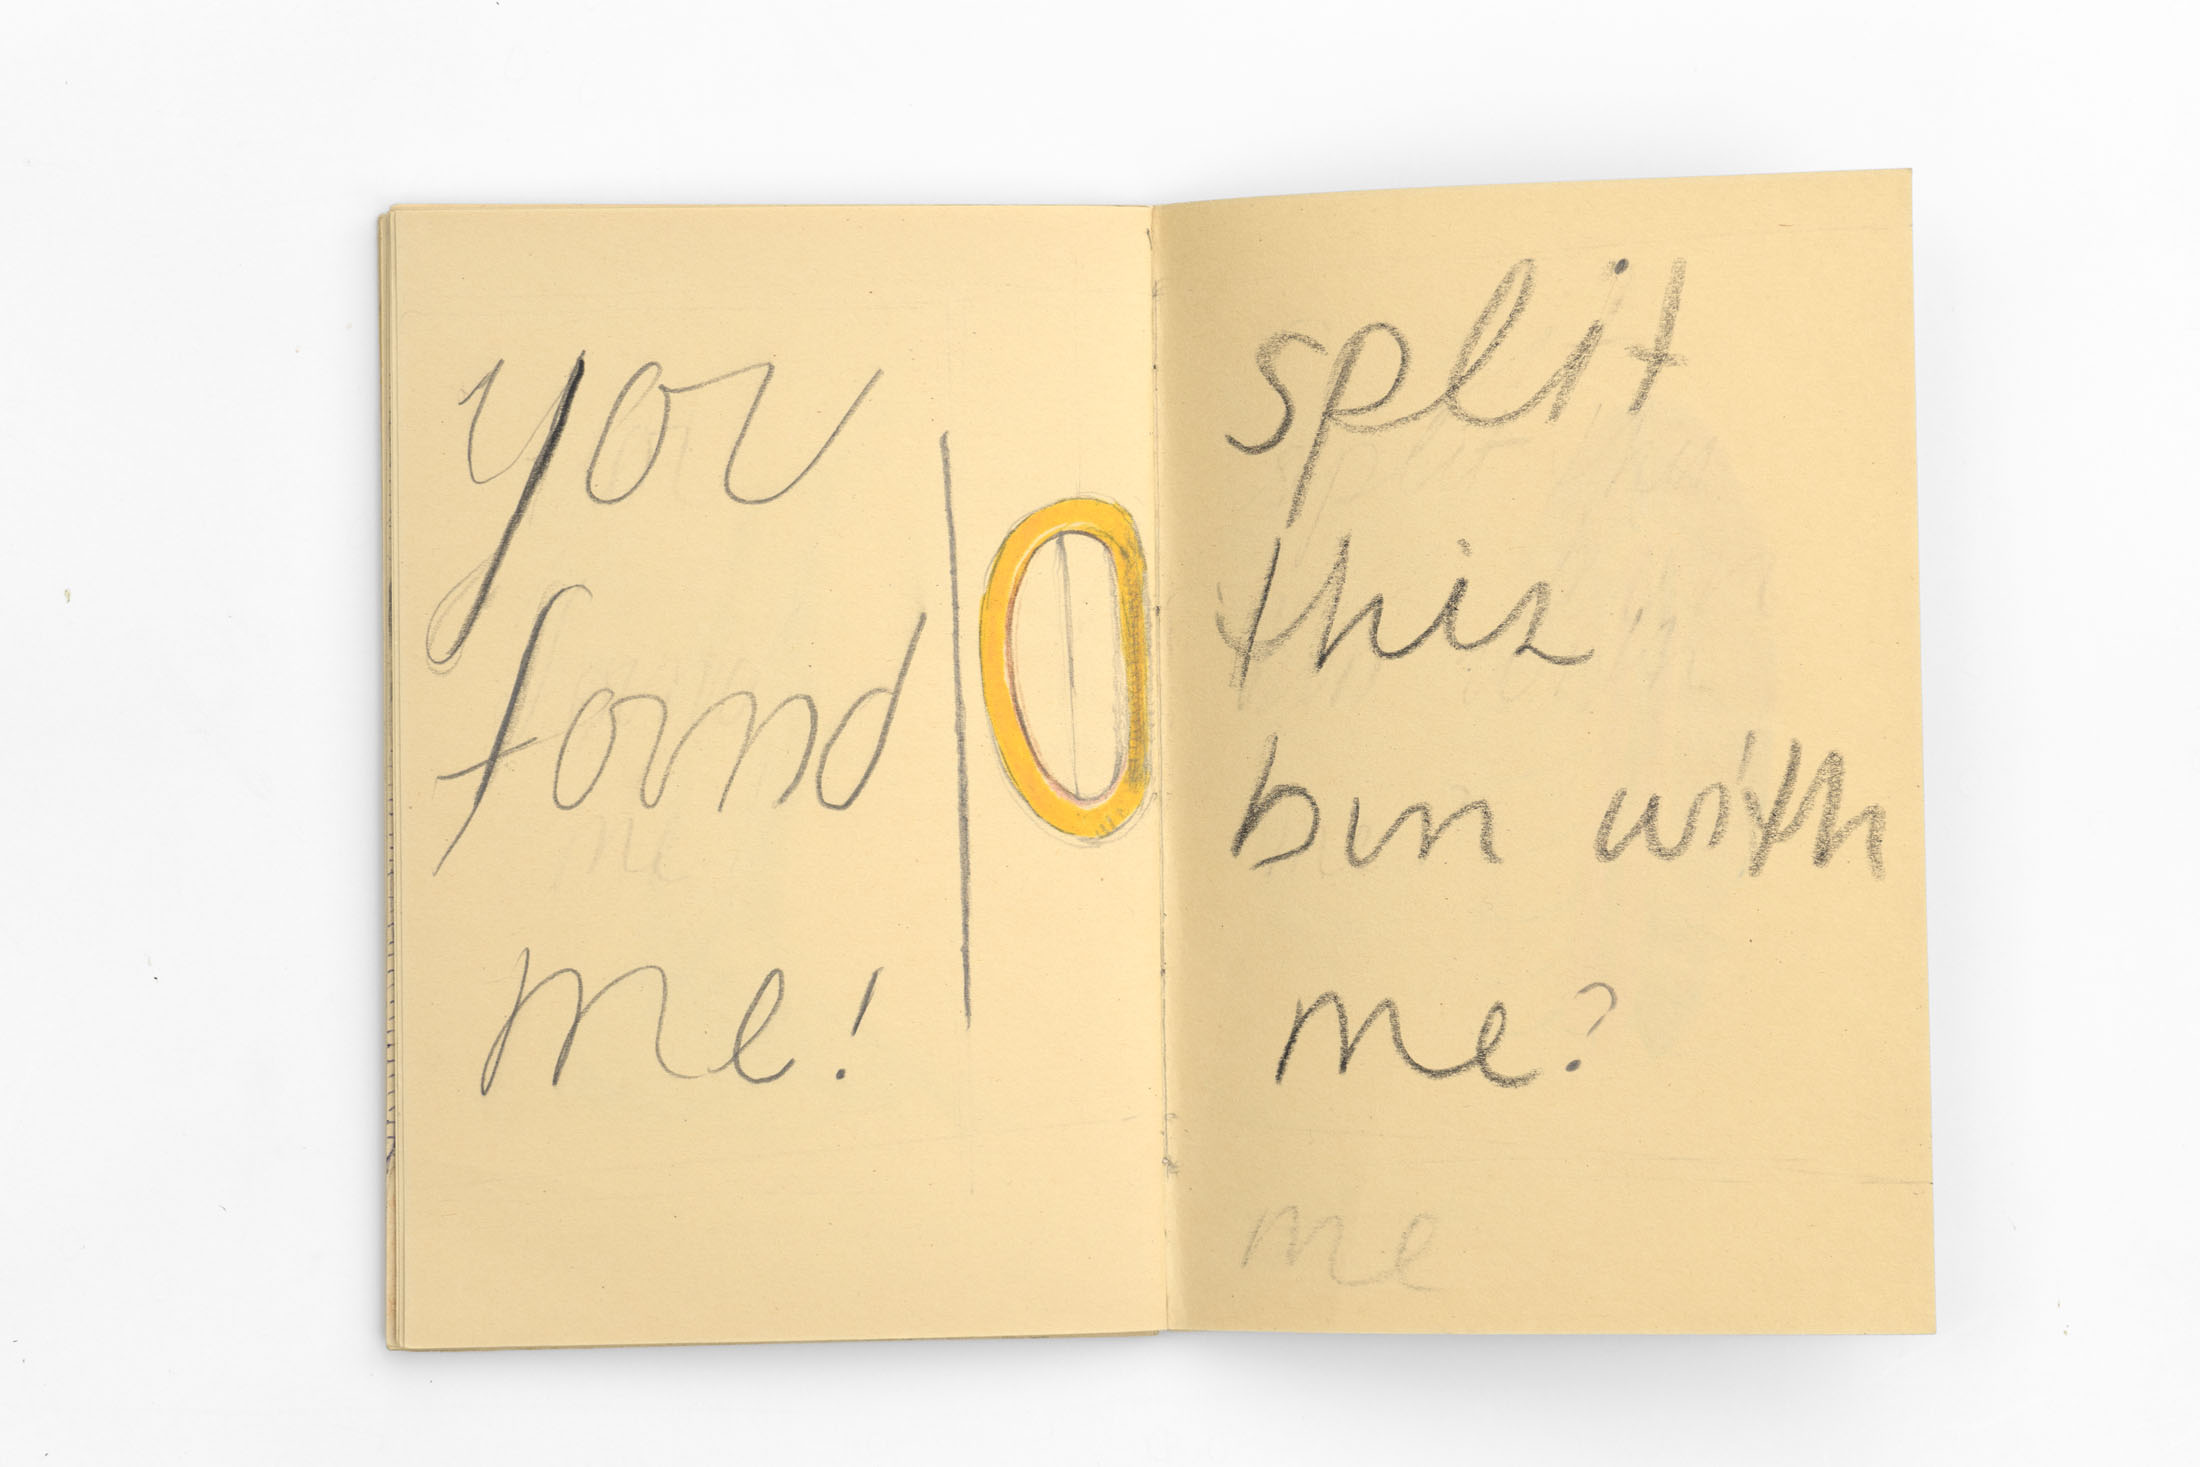 you
found
me!
split
this
bun with
me?
me